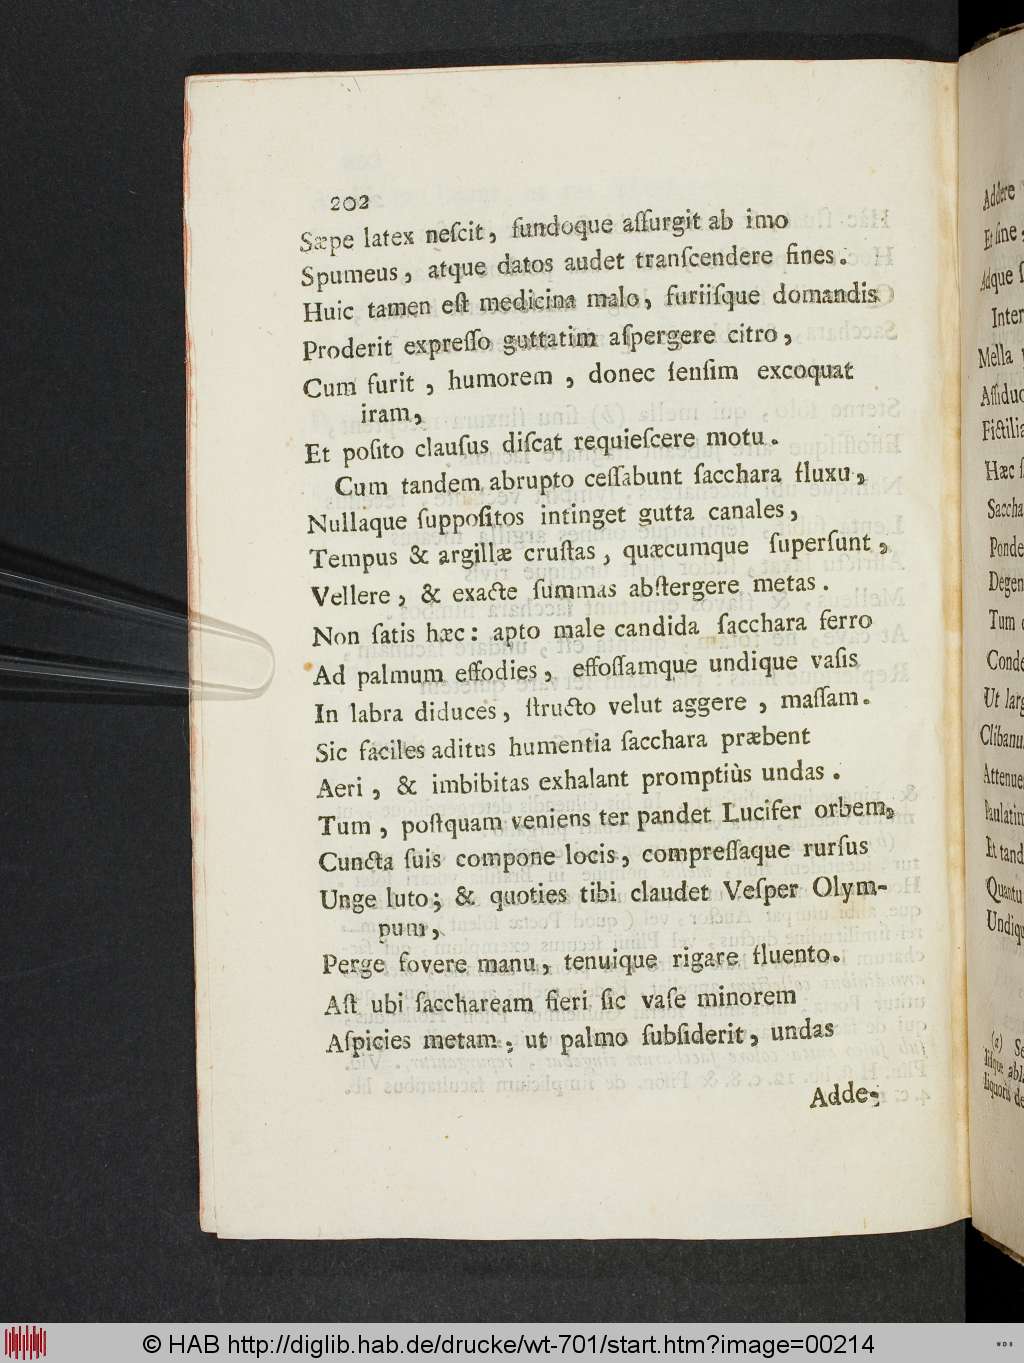 202
Sæpe latex neſcit, fundoque aſſurgit ab imo
Spumeus, atque datos audet tranſcendere fines.
Huic tamen eſt medicina malo, furiiſque domandis
Proderit expreſſo guttatim aſpergere citro,
Cum furit, humorem, donec ſenſim excoquat
iram,
Et poſito clauſus diſcat requieſcere motu.
Cum tandem abrupto ceſſabunt ſacchara fluxu,
Nullaque ſuppoſitos intinget gutta canales,
Tempus & argillæ cruſtas, quæcumque ſuperſunt,
Vellere, & exacte ſummas abſtergere metas.
Non ſatis hæc: apto male candida ſacchara ferro
Ad palmum effodies, effoſſamque undique vaſis
In labra diduces, ſtructo velut aggere, maſſam.
Sic faciles aditus humentia ſacchara præbent
Aeri, & imbibitas exhalant promptiùs undas.
Tum, poſtquam veniens ter pandet Lucifer orbem,
Cuncta ſuis compone locis, compreſſaque rurſus
Unge luto; & quoties tibi claudet Veſper Olym-
pum,
Perge fovere manu, tenuique rigare fluento.
Aſt ubi ſacchaream fieri ſic vaſe minorem
Aſpicies metam, ut palmo ſubſiderit, undas
Adde-
Addere
Et ſine,
Adque
Inter
Mella
Fictilia
Hæc
Saccha
Ponde
Degen
Tum
Conde
Ut larg
Clibanu
Attenue
Paulatim
Et tand
Quantu
Undiqu
(a) Se
© HAB http://diglib.hab.de/drucke/wt-701/start.htm?image=00214